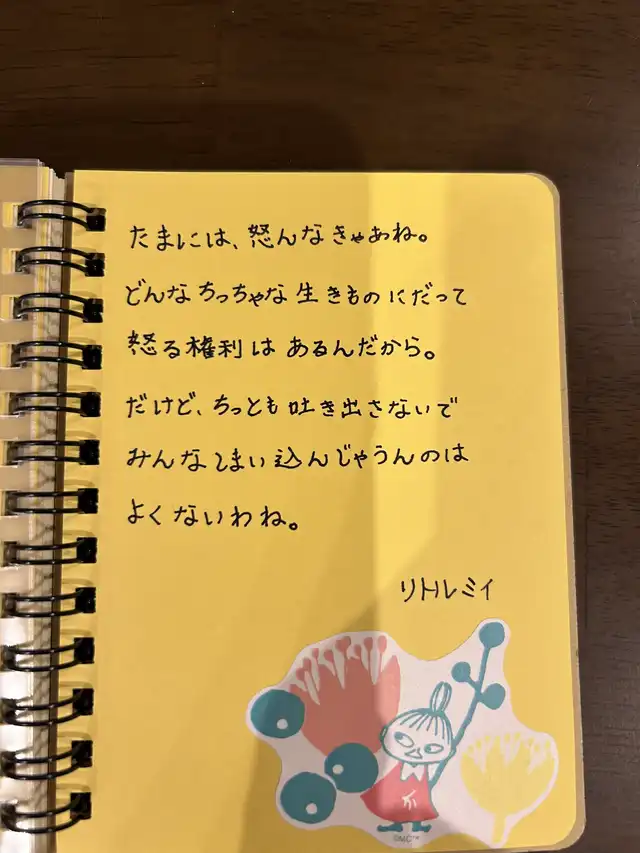 たまには、怒んなきゃあね。
どんなちっちゃな生きものにだって
怒る権利はあるんだから。
だけど、ちっとも吐き出さないで
みんなしまい込んじゃうんのは
よくないわね。
リトルミイ
©MC™